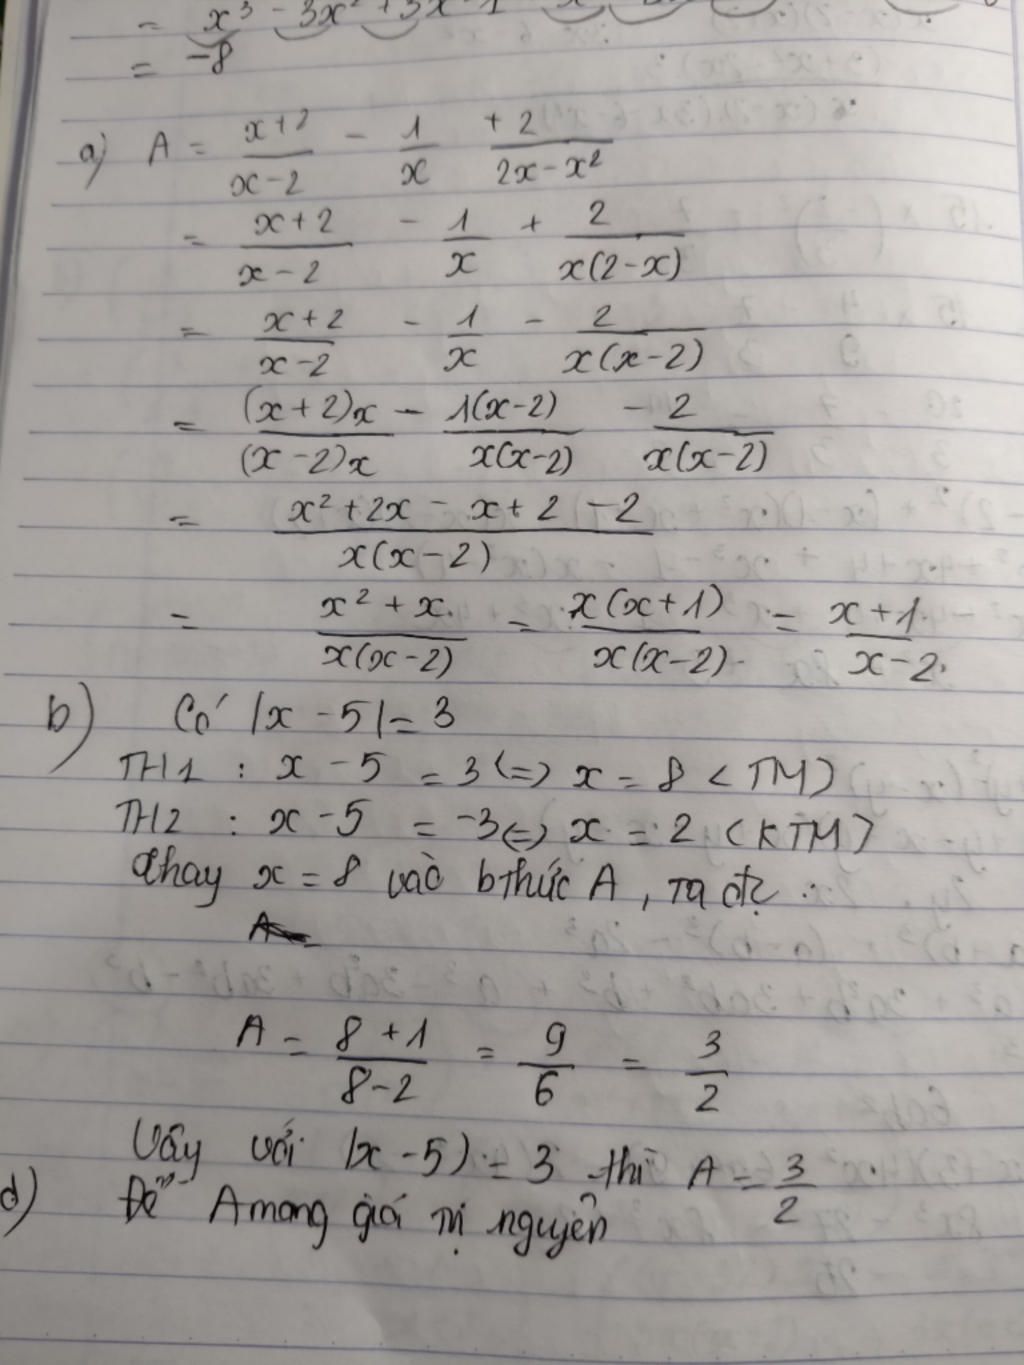 = x³ - 3x² + 3x - 1
= -8
a) A = x+2/x-2 - 1/x +2/2x-x²
= x+2/x-2 - 1/x + 2/x(2-x)
= x+2/x-2 - 1/x - 2/x(x-2)
= (x+2)x/(x-2)x - 1(x-2)/x(x-2) - 2/x(x-2)
= x²+2x - x+2-2/x(x-2)
= x²+x/x(x-2) = x(x+1)/x(x-2) = x+1/x-2
b) Có |x-5|=3
TH1 : x-5 = 3 <=> x = 8 <TM>
TH2 : x-5 = -3 <=> x = 2 <KTM>
thay x = 8 vào bthức A, ta đc :
A = 8+1/8-2 = 9/6 = 3/2
Vậy với |x-5| = 3 thì A = 3/2
d) Để A mang giá trị nguyên